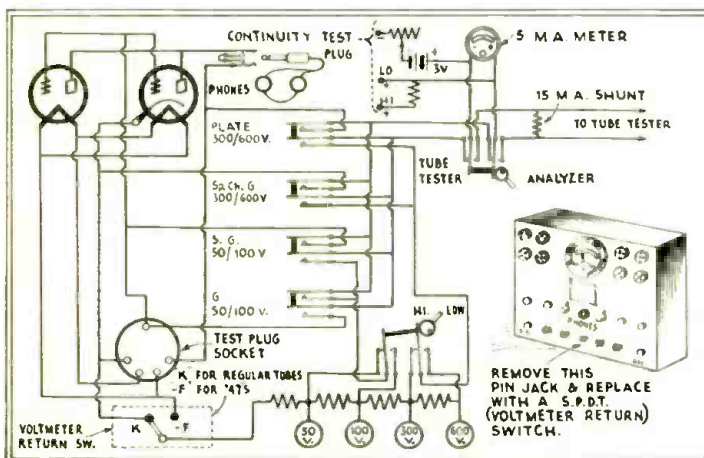 CONTINUITY TEST
PLUG
PHONES
LO
HI
3V
5 M.A. METER
15 M.A. SHUNT
TO TUBE TESTER
PLATE
300/600V.
TUBE
TESTER
ANALYZER
300/600V
S. G.
50/100 V
G
50/100 V.
HI.
LOW
PHONES
TEST PLUG
SOCKET
"K" FOR REGULAR TUBES
"F" FOR '47S
VOLTMETER
RETURN SW.
K
-F
50
V.
100
V.
300
V.
600
V.
REMOVE THIS
PIN JACK & REPLACE
WITH A S.P.D.T.
(VOLTMETER RETURN)
SWITCH.